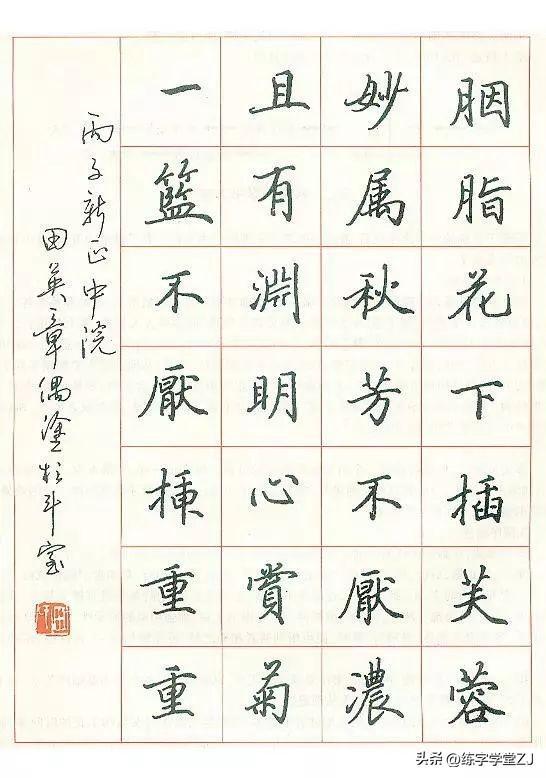 胭脂花下插芙蓉
妙属秋芳不厭濃
且有淵明心賞菊
一籃不厭挿重重
丙子新正中院
田英章偶塗於斗室
头条 @练字学堂ZJ